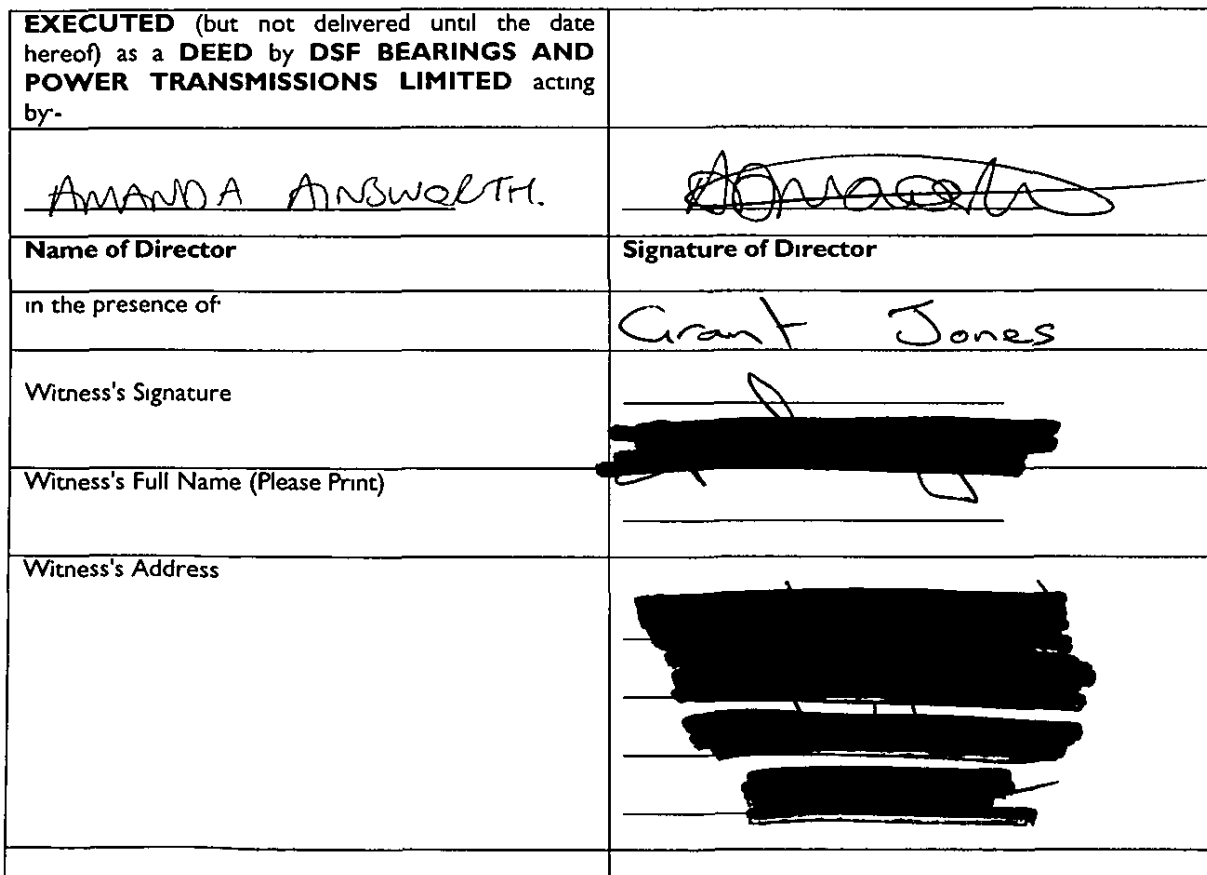 EXECUTED (but not delivered until the date
hereof) as a DEED by DSF BEARINGS AND
POWER TRANSMISSIONS LIMITED acting
by:-
AMANDA AINSWORTH.
Name of Director
Signature of Director
in the presence of
Grant Jones
Witness's Signature
Witness's Full Name (Please Print)
Witness's Address